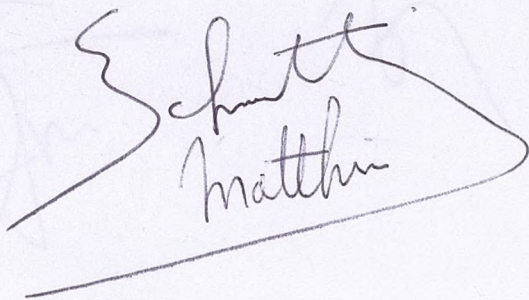 Schmitt
Matthieu